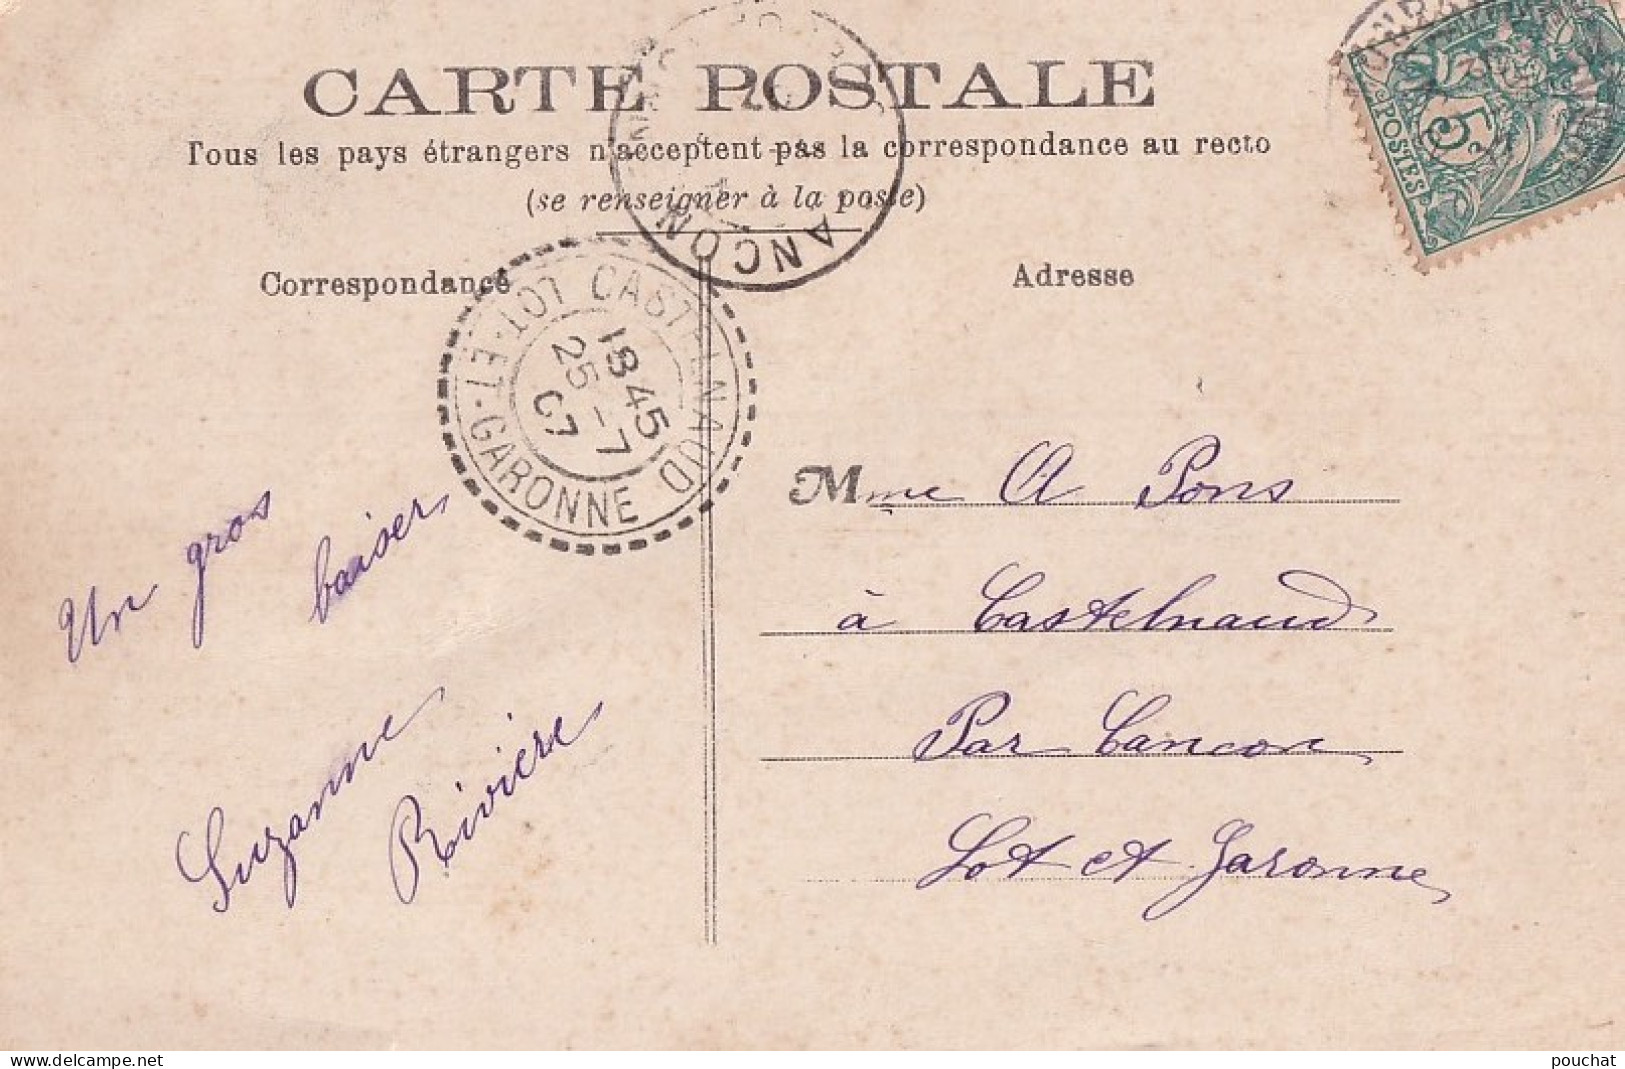 CARTE POSTALE
Tous les pays étrangers n'acceptent pas la correspondance au recto
(se renseigner à la poste)
Correspondance
Adresse
CANCON
CASTELNAUD
LOT-ET-GARONNE
18 45
25 - 7
07
POSTES
5
Un gros
baiser
Suzanne
Rivière
Mme A Pons
à Castelnaud
Par Cancon
Lot et Garonne
www.delcampe.net
pouchat